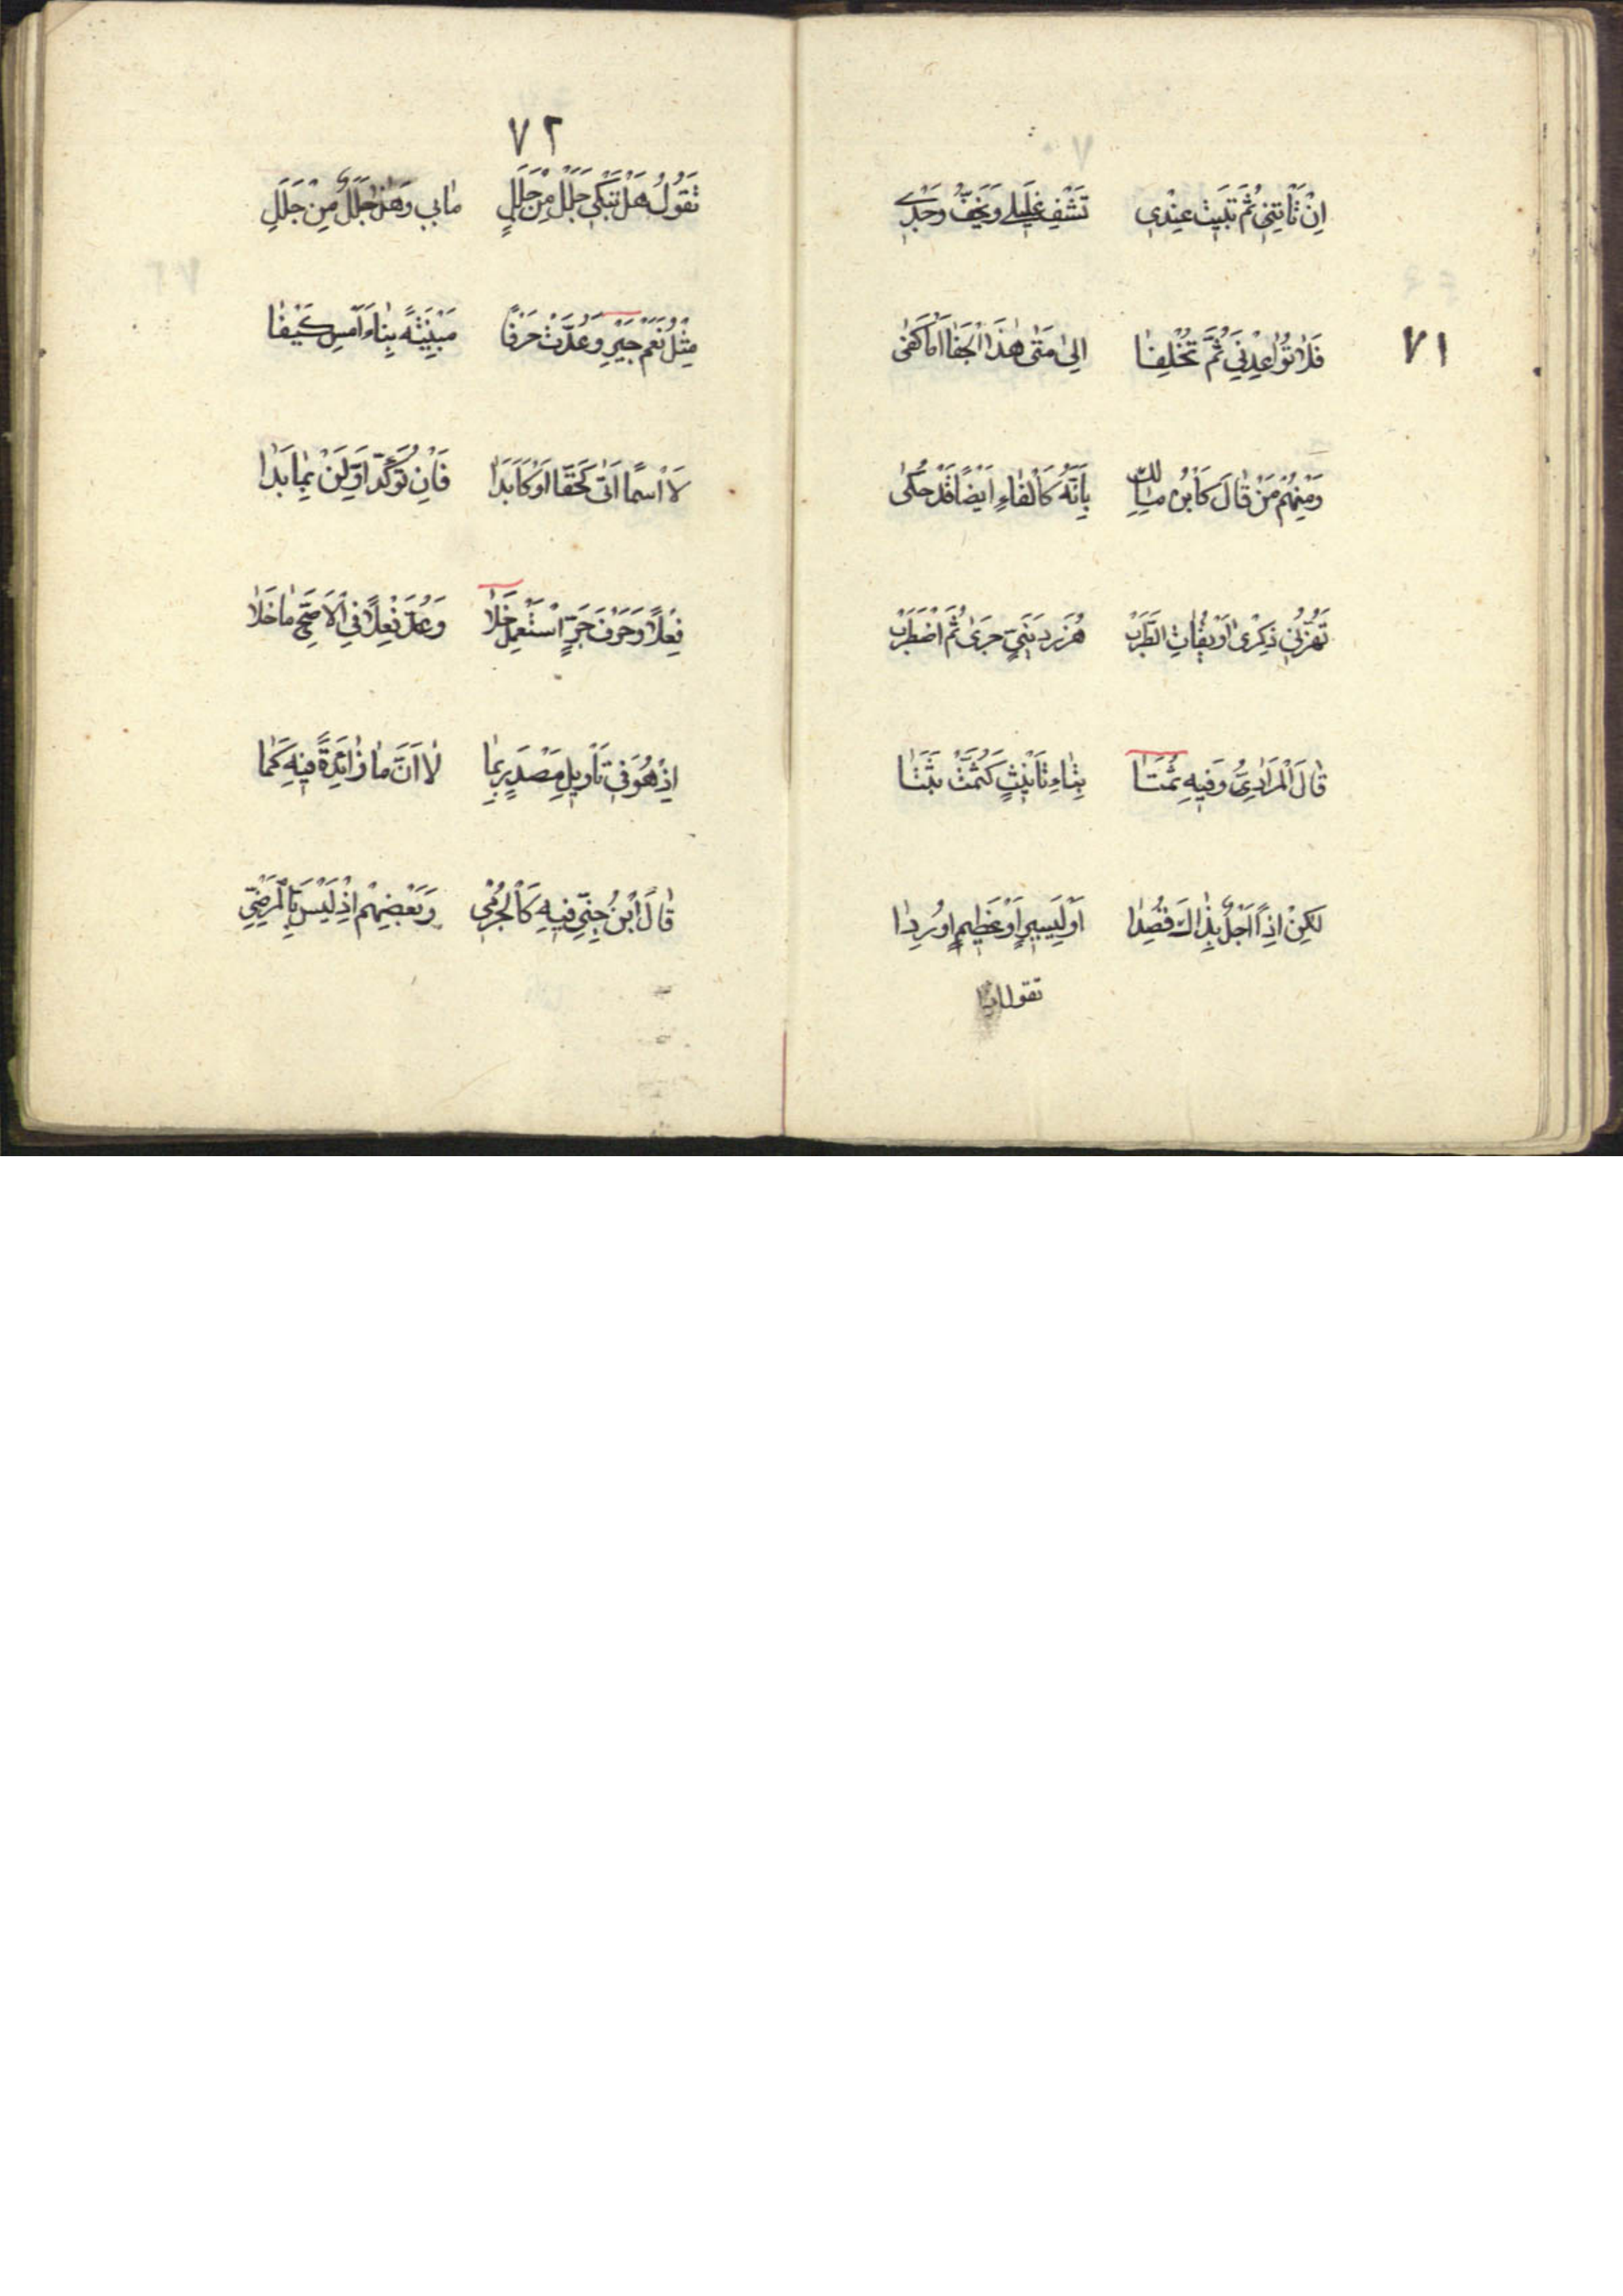 اِنْ تَأْتِنِي ثُمَّ تَبِيتَ عِنْدِي تَشْفِ غَلِيلِي وَيَخِفُّ وَجْدِي
٧١
فَلَا تُوَاعِدْنِي ثُمَّ تُخْلِفَا اِلَى مَتَى هٰذَا الْجَفَا اَمَا كَفَى
وَمِنْهُمْ مَنْ قَالَ كَابْنُ مَالِكِ بِاَنَّهُ كَالْفَاءِ اَيْضًا قَدْ حُكَى
تَهُزُّنِي ذِكْرَى اُوَيْقَاتِ الطَّرَبْ هَزَّ رُدَيْنِيٍّ جَرَى ثُمَّ اضْطَرَبْ
قَالَ الْمُرَادِيُّ وَفِيهِ ثُمَّتَا بِتَاءِ تَأْنِيثٍ كَثُمَّتْ ثَبَتَا
لٰكِنْ اِذًا اَجَلْ بِذَاكَ قُصِدَا اَوْ لِيَسِيرٍ اَوْ عَظِيمٍ اُورِدَا
تقول
٧٢
تَقُولُ هَلْ تَبْكِي جَلَلْ مِنْ جَلَلٍ مَابِي وَهٰذَا جَلَلٌ مِنْ جَلَلِ
مِثْلُ نَعَمْ جَيْرِ وَعُدَّتْ حَرْفًا مَبْنِيَّةً بِنَاءَ اَمْسِ كَيْفَا
لَا اسْمًا اَتَى كَحَقًّا اَوْ كَاَبَدَا فَاِنْ تُؤَكِّدْ اَوِّلَنْ بِمَا بَدَا
فِعْلًا وَحَرْفَ جَرٍّ اسْتَعْمِلْ خَلَا وَعُدَّ فِعْلًا فِي الْاَصَحِّ مَا خَلَا
اِذْ هُوَ فِي تَأْوِيلِ مَصْدَرٍ بِمَا لَا اَنَّ مَا زَائِدَةً فِيهِ كَمَا
قَالَ ابْنُ جِنِّيِّ فِيهِ كَالْجُرْمِي وَبَعْضِهِمْ اِذْ لَيْسَ بِالْمَرْضِيِّ